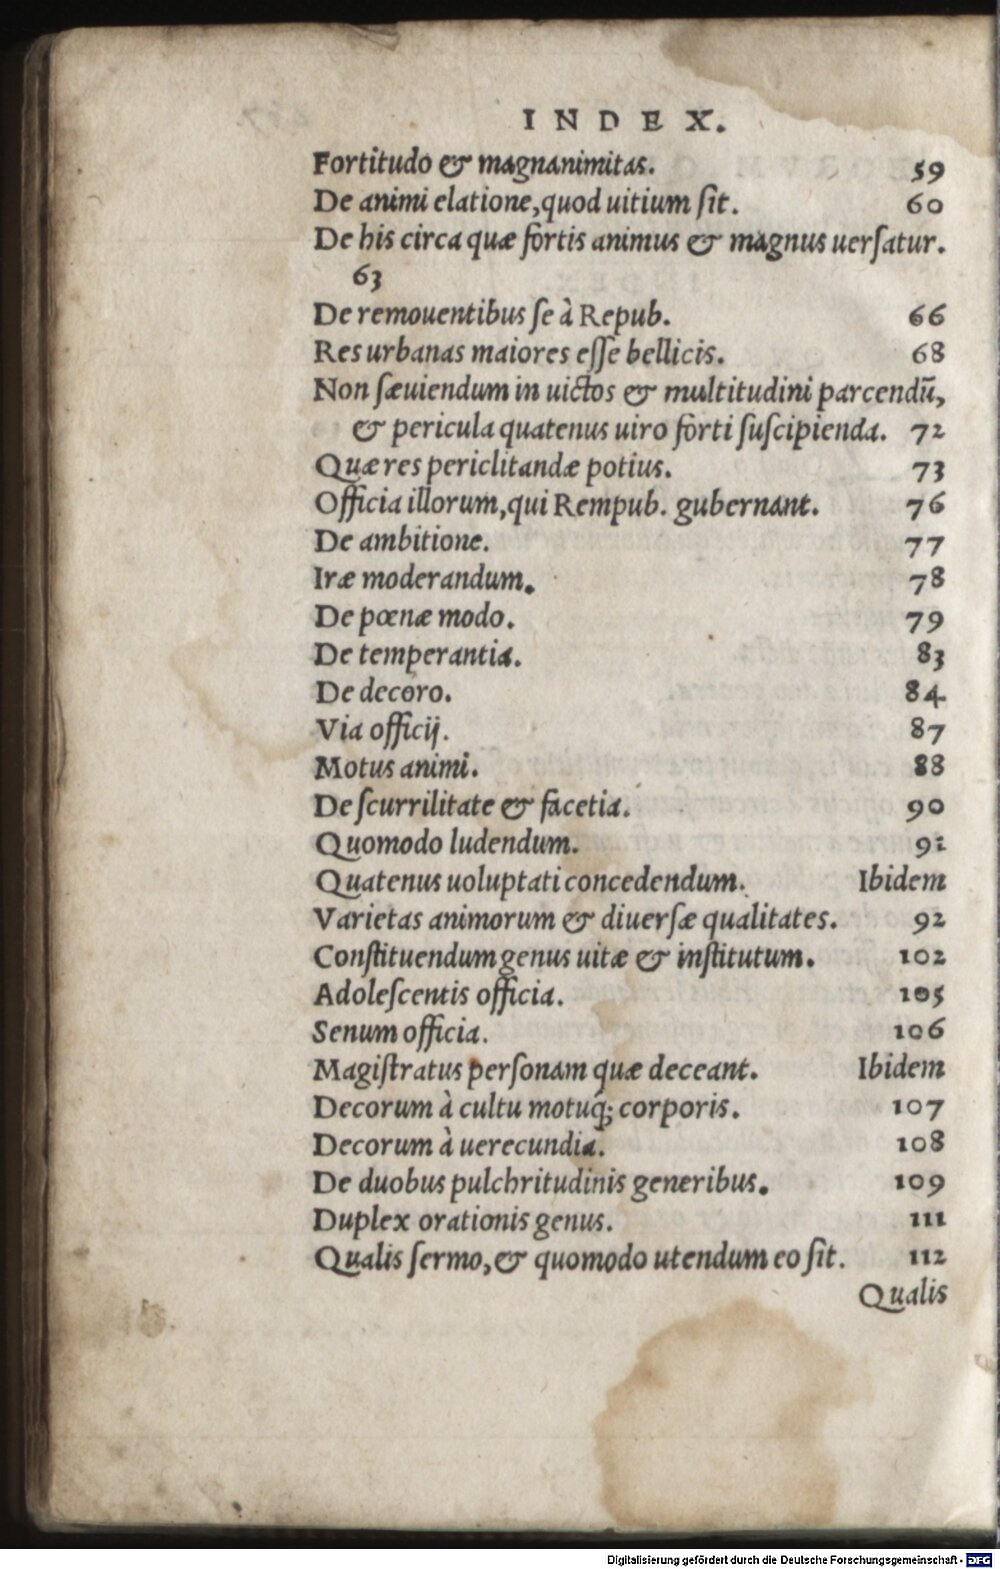 INDEX.
Fortitudo & magnanimitas. 59
De animi elatione,quod uitium ſit. 60
De his circa quæ fortis animus & magnus uerſatur.
63
De remouentibus ſe à Repub. 66
Res urbanas maiores eſſe bellicis. 68
Non ſæuiendum in uictos & multitudini parcendū,
& pericula quatenus uiro forti ſuſcipienda. 72
Quæ res periclitandæ potius. 73
Officia illorum,qui Rempub. gubernant. 76
De ambitione. 77
Iræ moderandum. 78
De pœnæ modo. 79
De temperantia. 83
De decoro. 84
Via officij. 87
Motus animi. 88
De ſcurrilitate & facetia. 90
Quomodo ludendum. 91
Quatenus uoluptati concedendum. Ibidem
Varietas animorum & diuerſæ qualitates. 92
Conſtituendum genus uitæ & inſtitutum. 102
Adoleſcentis officia. 105
Senum officia. 106
Magiſtratus perſonam quæ deceant. Ibidem
Decorum à cultu motuq́; corporis. 107
Decorum à uerecundia. 108
De duobus pulchritudinis generibus. 109
Duplex orationis genus. 111
Qualis ſermo,& quomodo utendum eo ſit. 112
Qualis
Digitalisierung gefördert durch die Deutsche Forschungsgemeinschaft - DFG